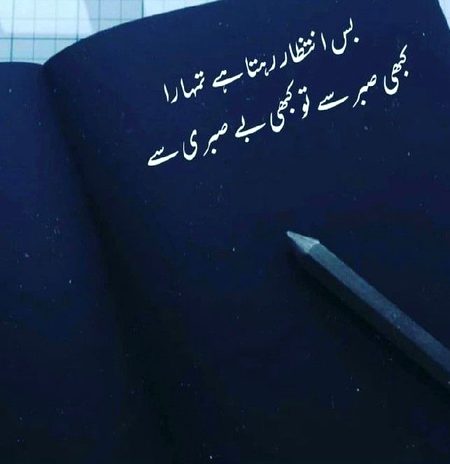 بس انتظار رہتا ہے تمہارا
کبھی صبر سے تو کبھی بے صبری سے